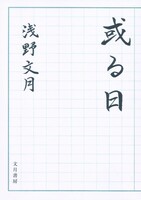 或る日
浅野文月
文月書房